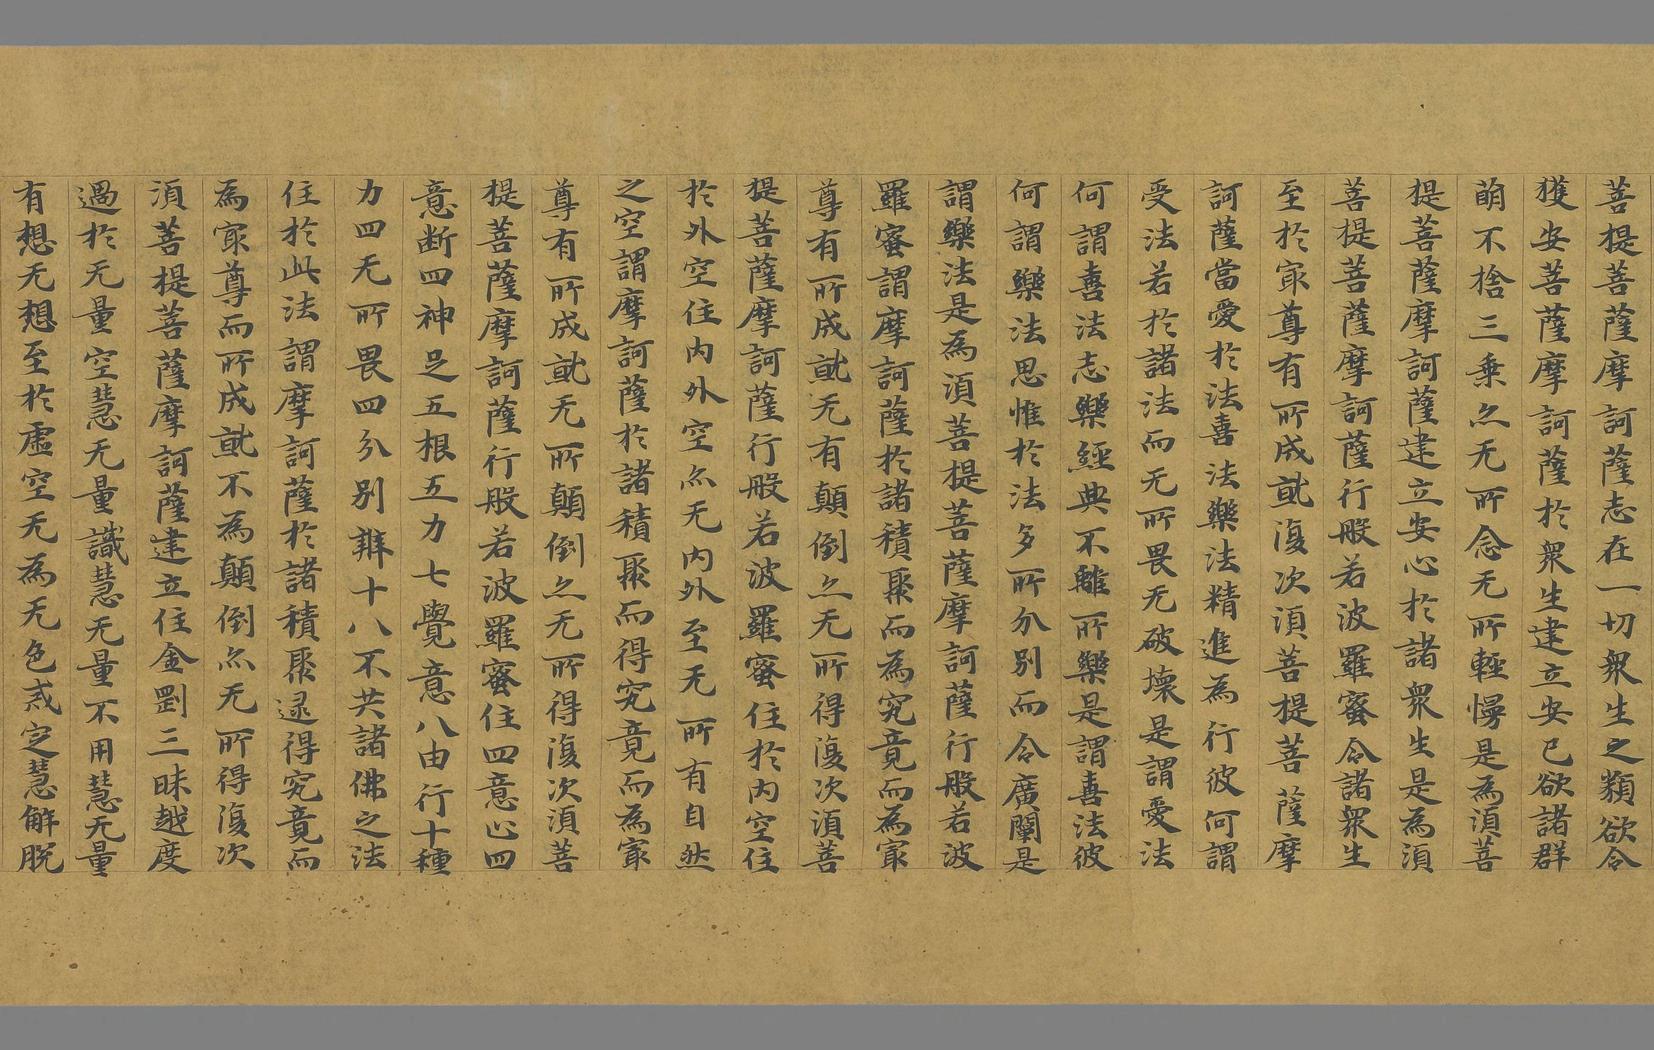 菩提菩薩摩訶薩志在一切衆生之類欲令
獲安菩薩摩訶薩於衆生建立安已欲諸群
萌不捨三乗亦无所念无所輕慢是為須菩
提菩薩摩訶薩建立安心於諸衆生是為須
菩提菩薩摩訶薩行般若波羅蜜令諸衆生
至於㝡尊有所成就復次須菩提菩薩摩
訶薩當愛於法喜法樂法精進為行彼何謂
受法若於諸法而无所畏无破壊是謂愛法
何謂喜法志樂經典不離所樂是謂喜法彼
何謂樂法思惟於法多所分別而令廣闡是
謂樂法是為須菩提菩薩摩訶薩行般若波
羅蜜謂摩訶薩於諸積聚而為究竟而為㝡
尊有所成就无有顛倒亦无所得復次須菩
提菩薩摩訶薩行般若波羅蜜住於内空住
於外空住内外空亦无内外至无所有自然
之空謂摩訶薩於諸積聚而得究竟而為㝡
尊有所成就无所顛倒亦无所得復次須菩
提菩薩摩訶薩行般若波羅蜜住四意止四
意断四神足五根五力七覺意八由行十種
力四无所畏四分别辯十八不共諸佛之法
住於此法謂摩訶薩於諸積聚逮得究竟而
為㝡尊而所成就不為顛倒亦无所得復次
須菩提菩薩摩訶薩建立住金剛三昧越度
過於无量空慧无量識慧无量不用慧无量
有想无想至於虚空无為无色或定慧解脱